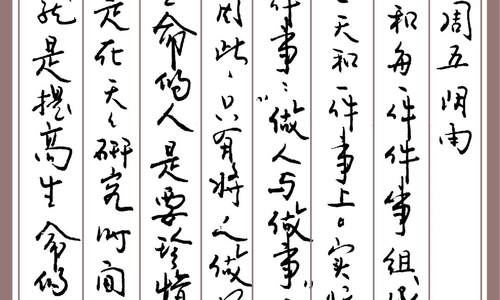 周五阴雨
和每一件件事组成
天和一件事上。实际
件事：“做人与做事”
因此，只有将人做
命的人是要珍惜
是在天天研究时间
就是提高生命的